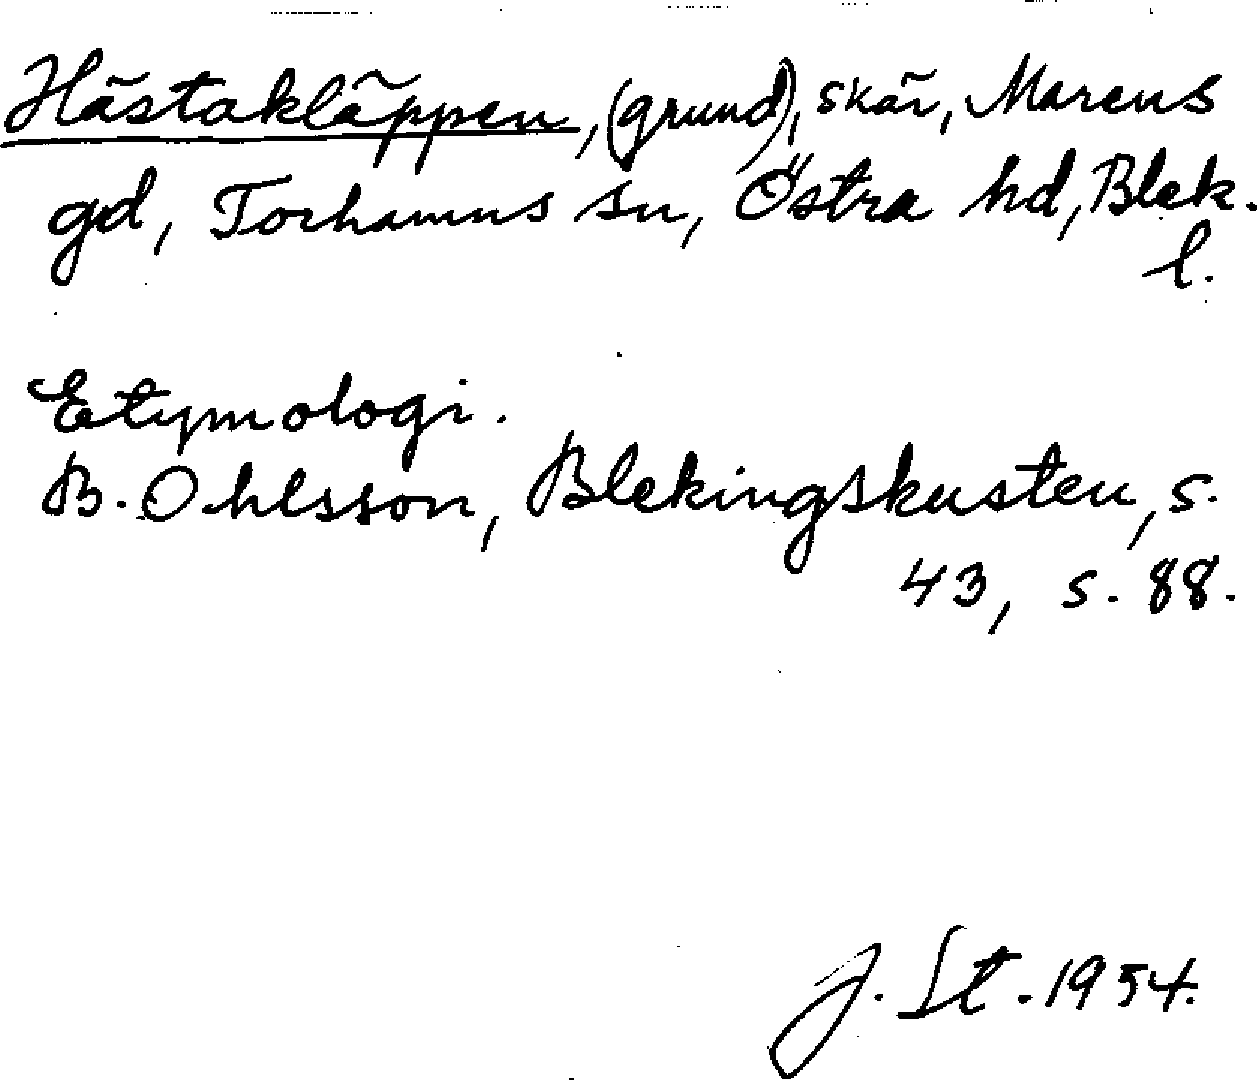 Hästakläppen, (grund), skär, Marcus
gd, Torhamns sn, Östra hd, Blek.
l.
Etymologi.
B. Ohlsson, Blekingskusten, s.
43, s. 88.
J. St. 1954.